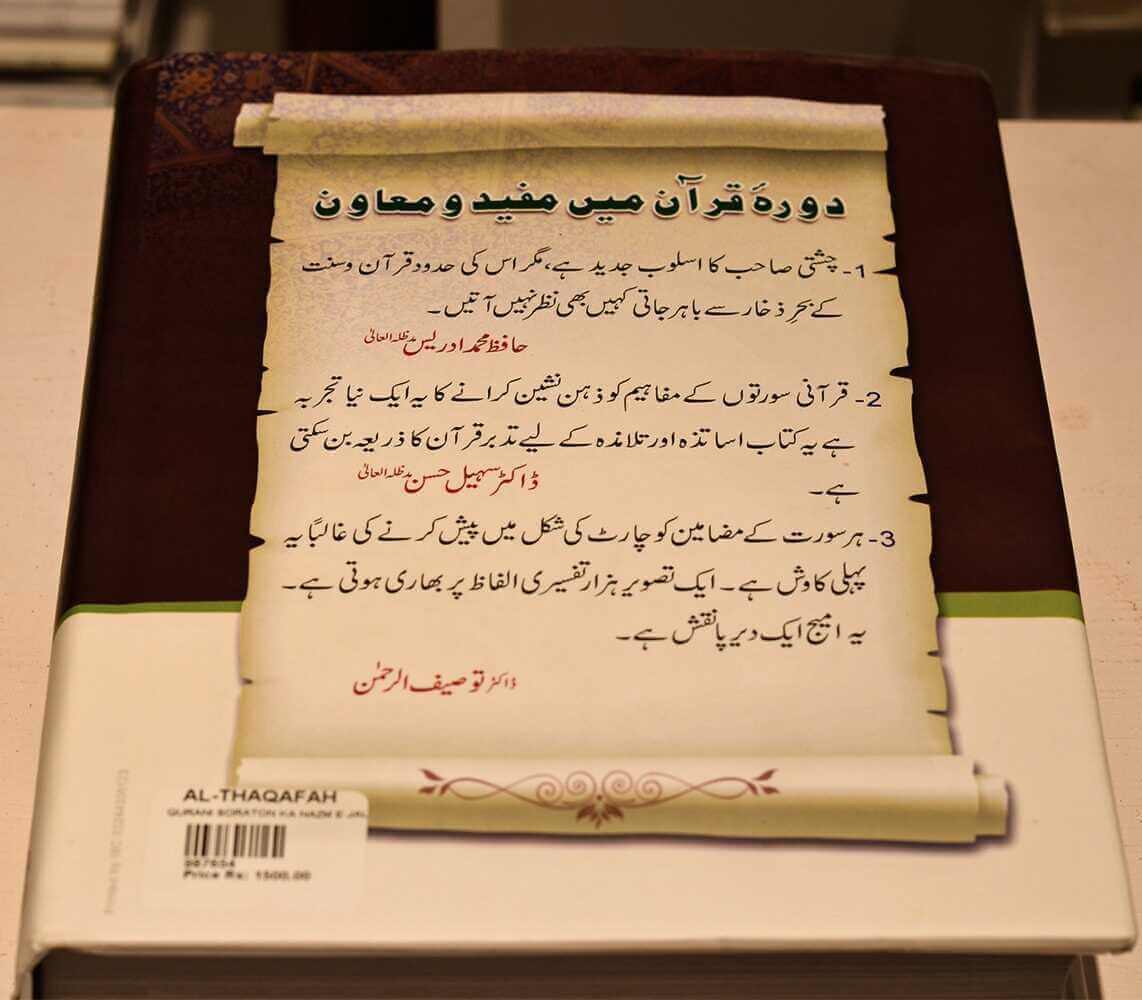 دورۂ قرآن میں مفید و معاون
1- چشتی صاحب کا اسلوب جدید ہے، مگر اس کی حدود قرآن وسنت
کے بحرِ ذخار سے باہر جاتی کہیں بھی نظر نہیں آتیں۔
حافظ محمد ادریس مدظلہ العالیٰ
2- قرآنی سورتوں کے مفاہیم کو ذہن نشین کرانے کا یہ ایک نیا تجربہ
ہے یہ کتاب اساتذہ اور تلامذہ کے لیے تدبر قرآن کا ذریعہ بن سکتی
ہے۔
ڈاکٹر سہیل حسن مدظلہ العالیٰ
3- ہر سورت کے مضامین کو چارٹ کی شکل میں پیش کرنے کی غالبًا یہ
پہلی کاوش ہے۔ ایک تصویر ہزار تفسیری الفاظ پر بھاری ہوتی ہے۔
یہ امیج ایک دیر پا نقش ہے۔
ڈاکٹر توصیف الرحمٰن
AL-THAQAFAH
QURANI SORATON KA NAZM E
Price Rs: 1500.00